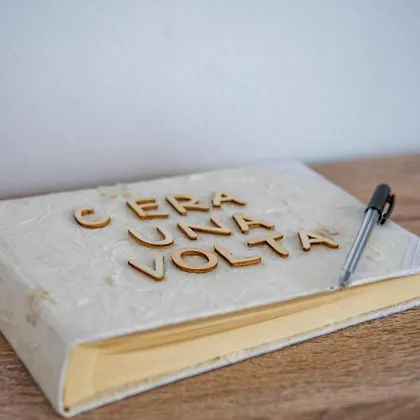 C ERA
UNA
VOLTA